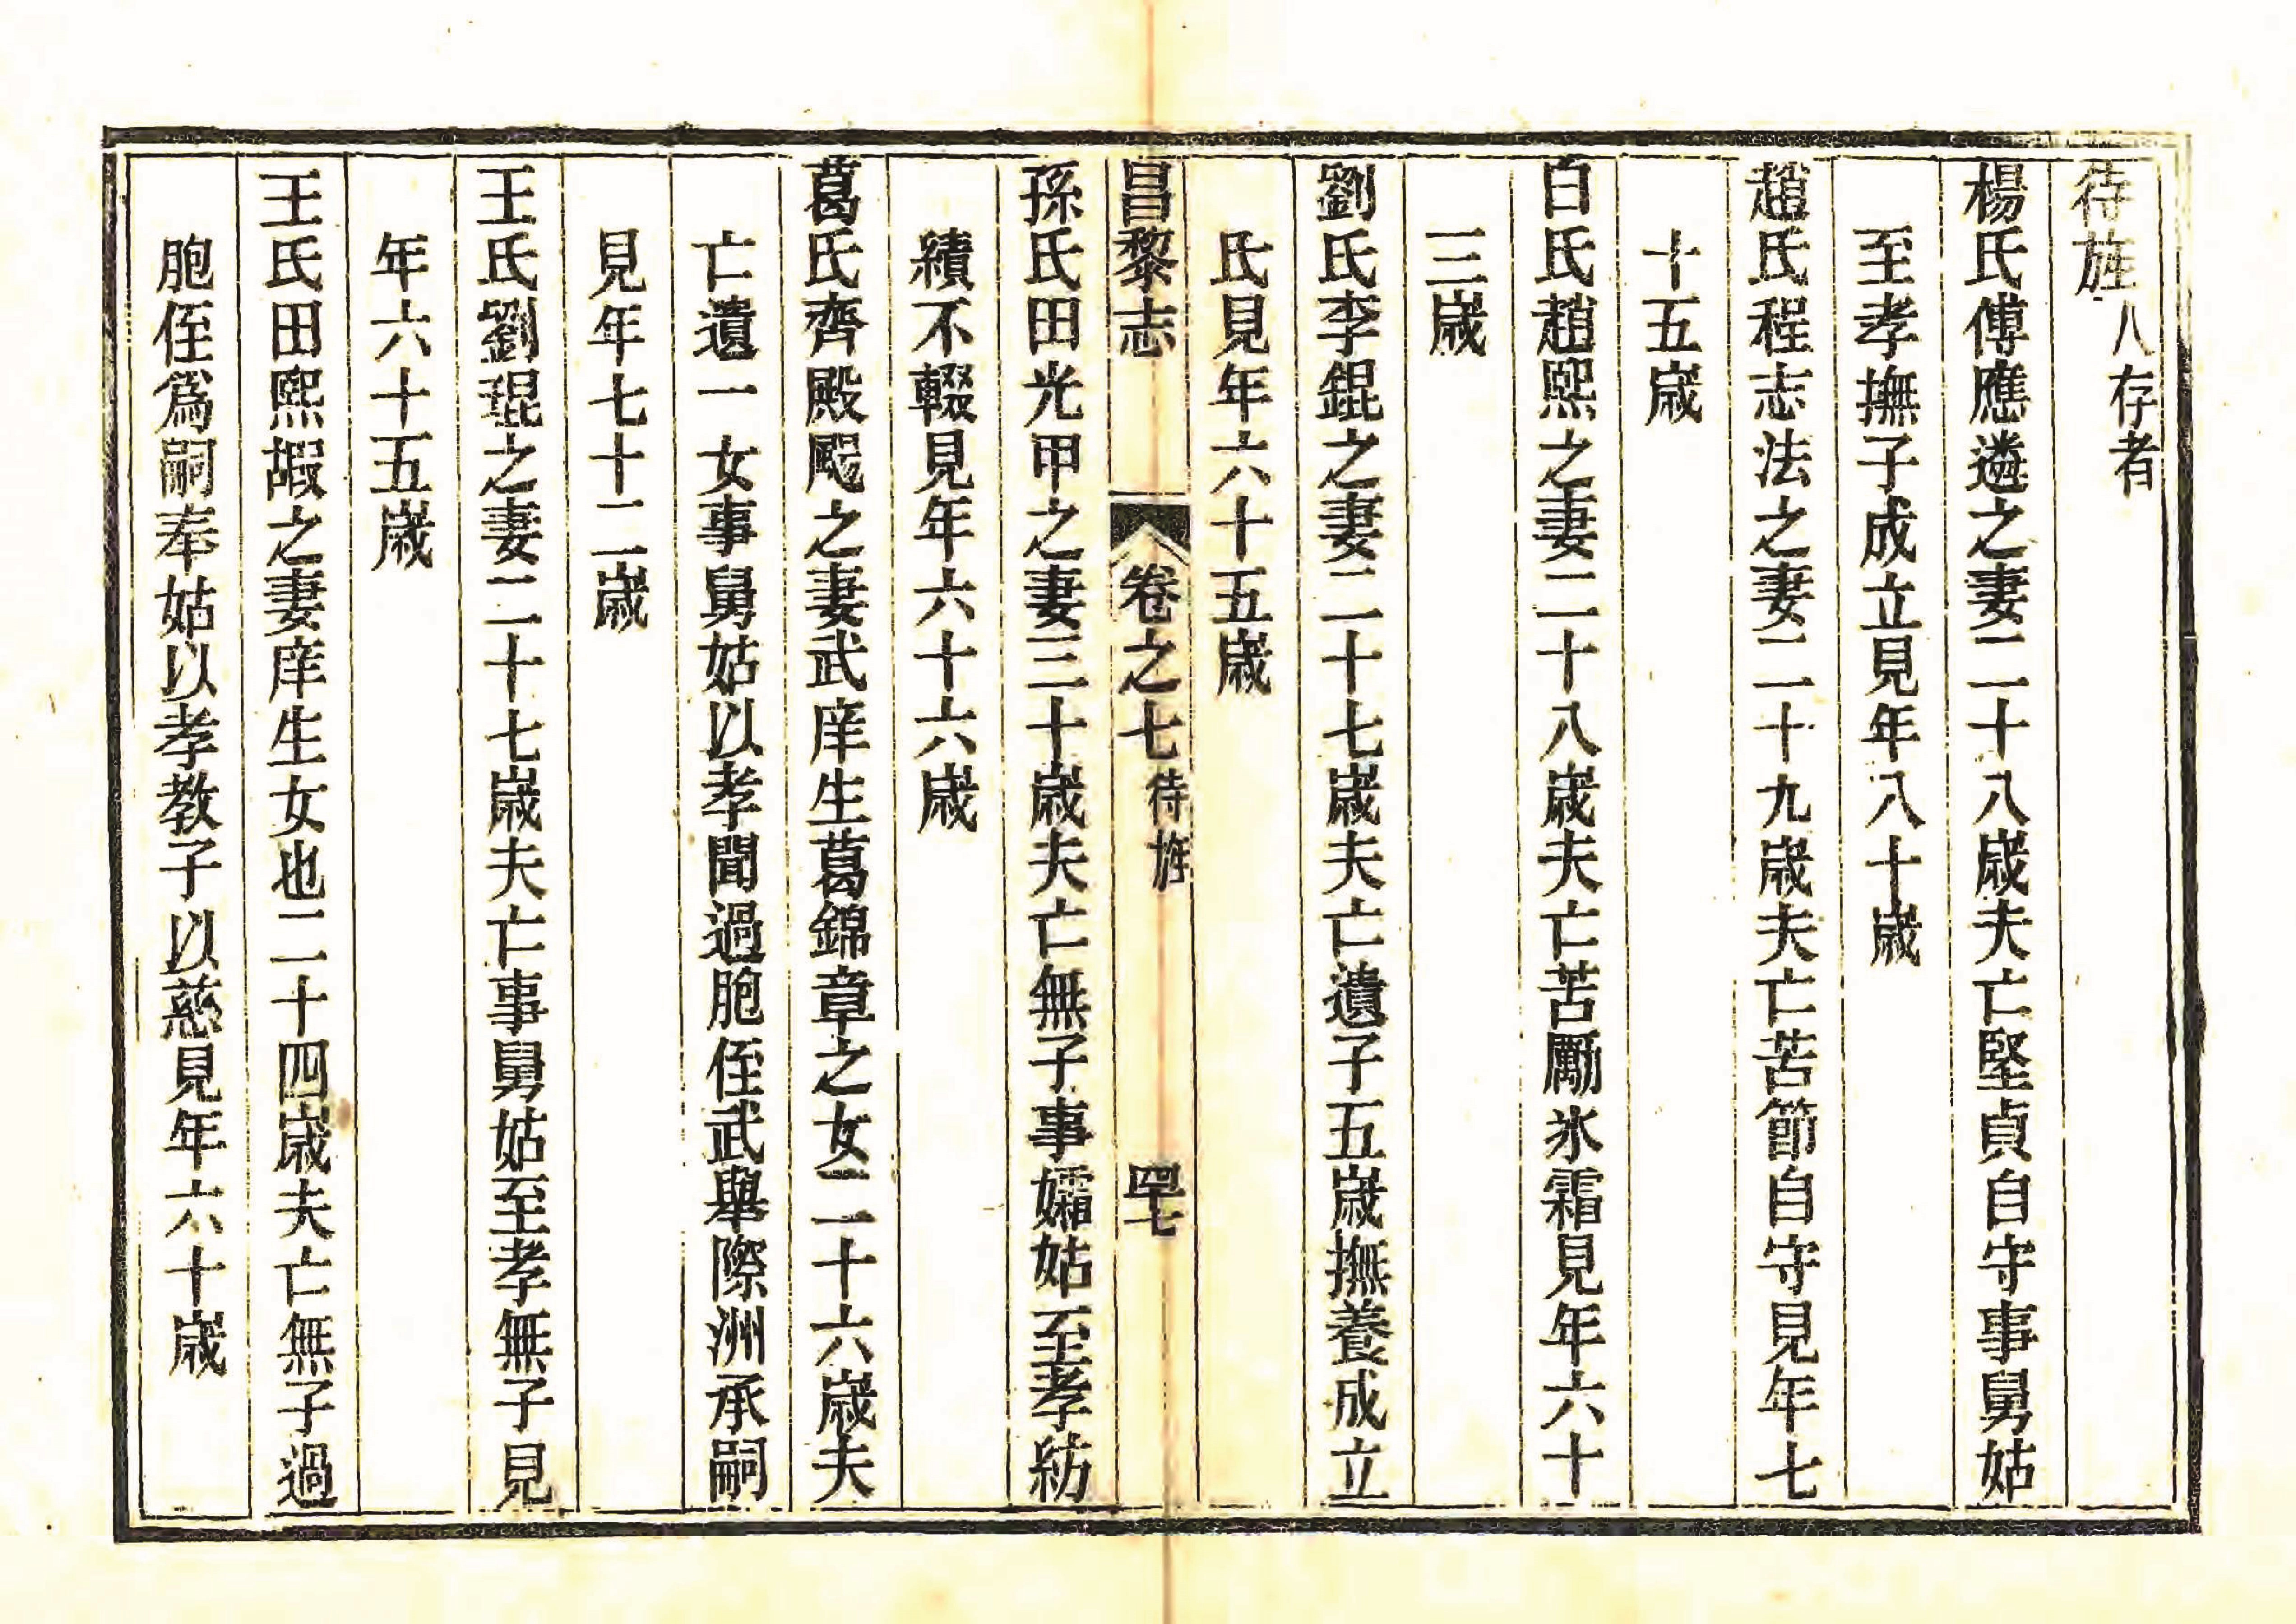 待旌八存者
楊氏傅應遴之妻二十八歲夫亡堅貞自守事舅姑
至孝撫子成立見年八十歲
趙氏程志法之妻二十九歲夫亡苦節自守見年七
十五歲
白氏趙熙之妻二十八歲夫亡苦勵氷霜見年六十
三歲
劉氏李錕之妻二十七歲夫亡遺子五歲撫養成立
氏見年六十五歲
昌黎志 卷之七 待旌 四十七
孫氏田光甲之妻三十歲夫亡無子事孀姑至孝紡
績不輟見年六十六歲
葛氏齊殿颺之妻武庠生葛錦章之女二十六歲夫
亡遺一女事舅姑以孝聞過胞侄武舉際洲承嗣
見年七十二歲
王氏劉琨之妻二十七歲夫亡事舅姑至孝無子見
年六十五歲
王氏田熙嘏之妻庠生女也二十四歲夫亡無子過
胞侄爲嗣奉姑以孝教子以慈見年六十歲